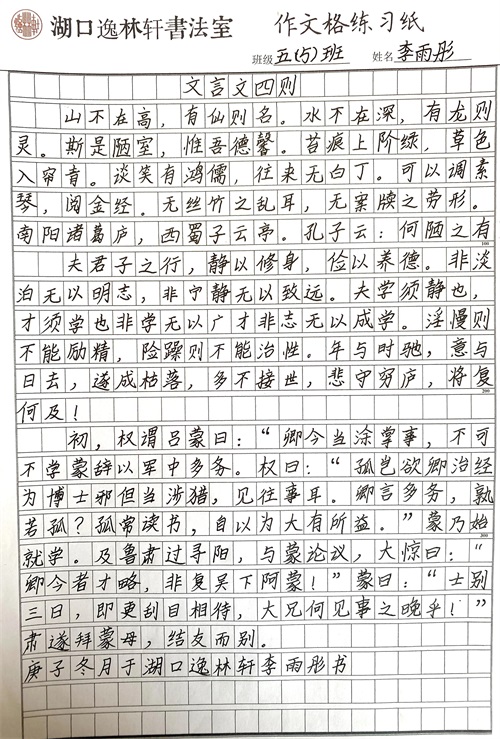 湖口逸林轩書法室 作文格练习纸
班级 五(5)班 姓名 李雨彤
文言文四则
山不在高,有仙则名。水不在深,有龙则
灵。斯是陋室,惟吾德馨。苔痕上阶绿,草色
入帘青。谈笑有鸿儒,往来无白丁。可以调素
琴,阅金经。无丝竹之乱耳,无案牍之劳形。
南阳诸葛庐,西蜀子云亭。孔子云:何陋之有
100
夫君子之行,静以修身,俭以养德。非淡
泊无以明志,非宁静无以致远。夫学须静也,
才须学也非学无以广才非志无以成学。淫慢则
不能励精,险躁则不能治性。年与时驰,意与
日去,遂成枯落,多不接世,悲守穷庐,将复
200
何及!
初,权谓吕蒙曰:“卿今当涂掌事,不可
不学蒙辞以军中多务。权曰:“孤岂欲卿治经
为博士邪但当涉猎,见往事耳。卿言多务,孰
若孤?孤常读书,自以为大有所益。”蒙乃始
300
就学。及鲁肃过寻阳,与蒙论议,大惊曰:“
卿今者才略,非复吴下阿蒙!”蒙曰:“士别
三日,即更刮目相待,大兄何见事之晚乎!”
肃遂拜蒙母,结友而别。
庚子冬月于湖口逸林轩李雨彤书